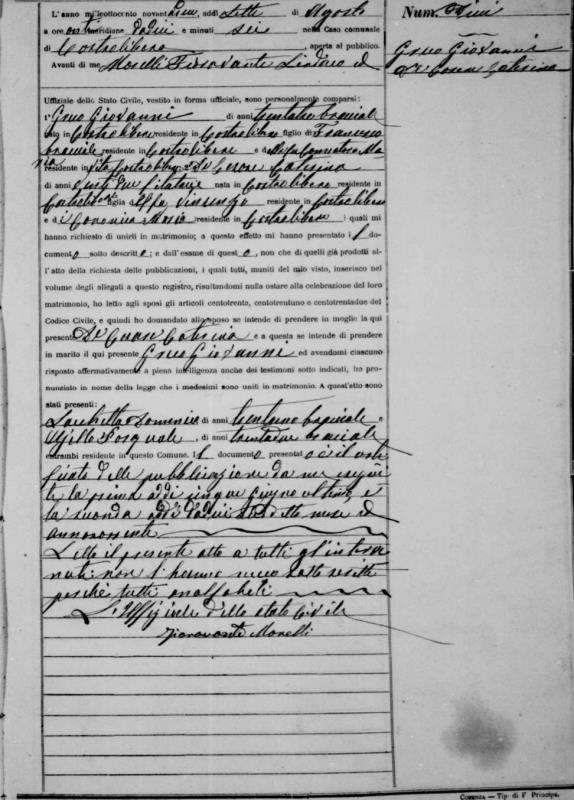 L'anno milleottocento novant addì Sette di Agosto
a ore anti meridiane dodici e minuti sei nella Casa comunale
di Castrolibero, aperta al pubblico.
Avanti di me Morelli Fioravante Sindaco ed
Uffiziale dello Stato Civile, vestito in forma ufficiale, sono personalmente comparsi:
1° Greco Giovanni di anni trentatre bracciale
nato in Castrolibero residente in Castrolibero figlio di Francesco
bracciale residente in Castrolibero e di
residente in Castrolibero e 2° De Cesare Caterina
di anni ventidue filatrice nata in Castrolibero residente in
Castrolibero figlia di Vincenzo residente in Castrolibero
e di Maria residente in Castrolibero; i quali mi
hanno richiesto di unirli in matrimonio; a questo effetto mi hanno presentato il do-
cumento sotto descritto; e dall'esame di questo, non che di quelli già prodotti al-
l'atto della richiesta delle pubblicazioni, i quali tutti, muniti del mio visto, inserisco nel
volume degli allegati a questo registro, risultandomi nulla ostare alla celebrazione del loro
matrimonio, ho letto agli sposi gli articoli centotrenta, centotrentuno e centotrentadue del
Codice Civile, e quindi ho domandato allo sposo se intende di prendere in moglie la qui
presente Caterina e a questa se intende di prendere
in marito il qui presente Greco Giovanni ed avendomi ciascuno
risposto affermativamente a piena intelligenza anche dei testimoni sotto indicati, ho pro-
nunziato in nome della legge che i medesimi sono uniti in matrimonio. A quest'atto sono
stati presenti:
Domenico di anni trentuno bracciale e
Pasquale, di anni trentadue bracciale
entrambi residente in questo Comune. Il documento presentato è il certi
ficato delle pubblicazione da me esegui
te la prima addì cinque giugno ultimo e
la seconda addì dodici detto mese ed
anno
Letto il presente atto a tutti gl'interve
nuti non l'hanno meco sotto scritto
perché tutti analfabeti
L'Uffiziale dello stato Civile
Fioravante Morelli
Num.
Greco Giovanni
Caterina
Cosenza — Tip. di F. Principe.